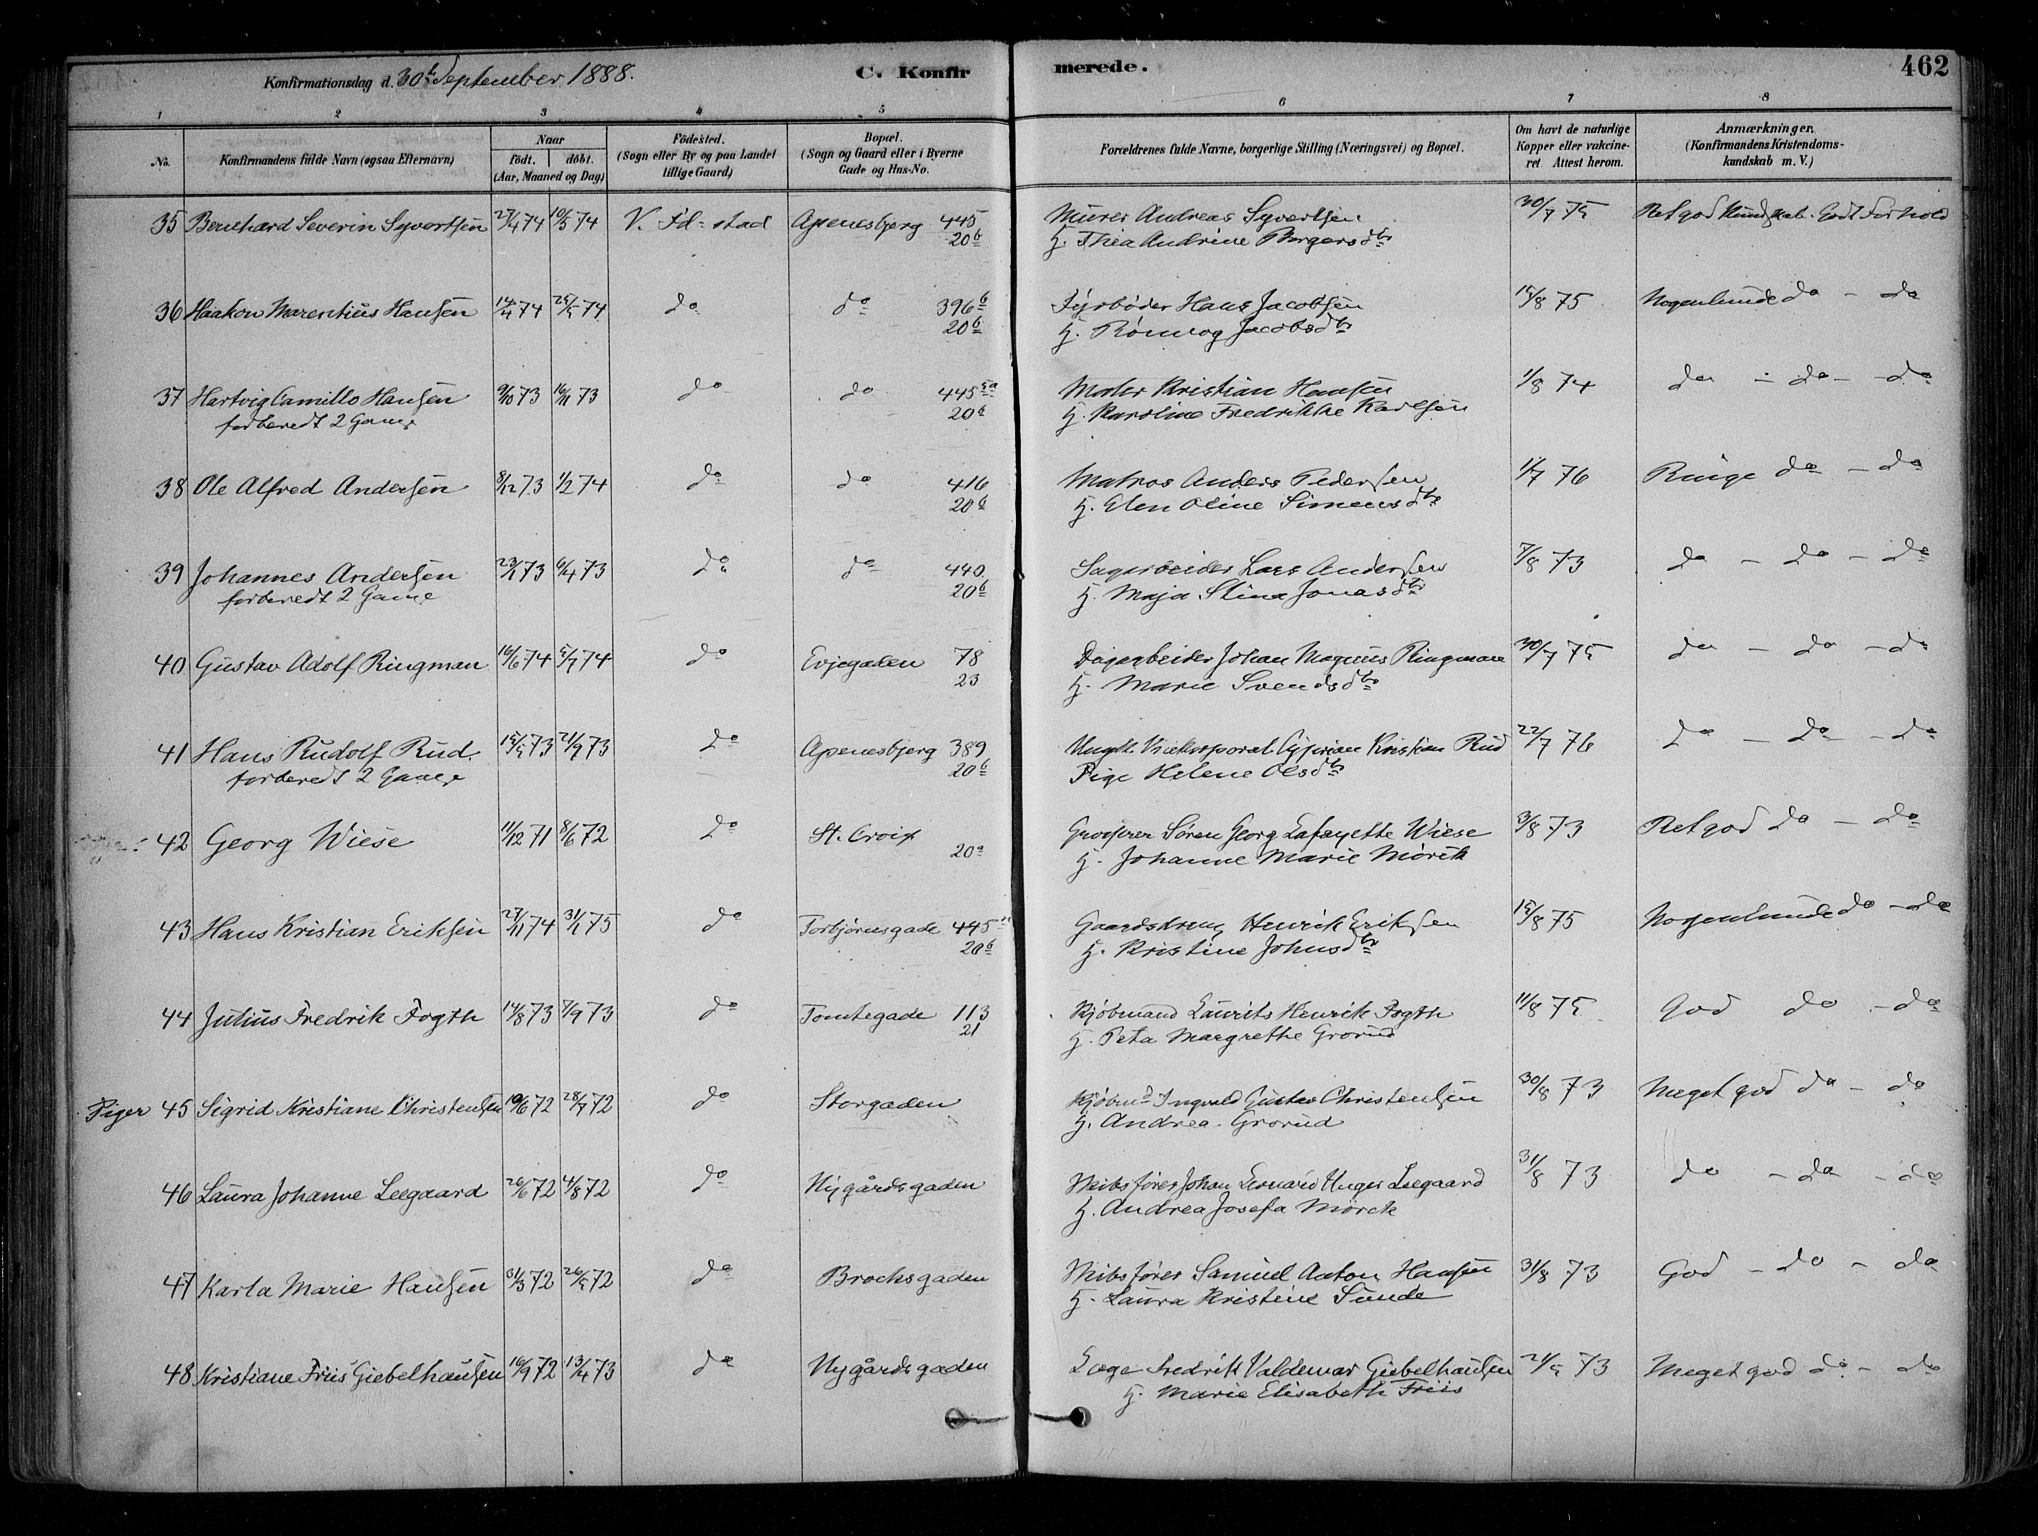 Konfirmationsdag d. 30te September 1888. C. Konfirmerede. 462
1 2 3 4 5 6 7 8
No. Konfirmandens fulde Navn (ogsaa Efternavn) Naar födt. döbt. (Aar, Maaned og Dag) Födested. (Sogn eller By og paa Landet tillige Gaard) Bopæl. (Sogn og Gaard eller i Byerne Gade og Hus-No. Forældrenes fulde Navne, borgerlige Stilling (Næringsvei) og Bopæl. Om havt de naturlige Kopper eller vakcineret Attest herom. Anmærkninger. (Konfirmandens Kristendomskundskab m. V.)
35 Bernhard Severin Syvertsen 27/4 74 10/5 74 V. Fd-stad Apenesbjerg 445 Murer Andreas Syvertsen 30/7 75 Ret god Kundskab. Godt Forhold
20b H. Thea Andrine Borgersdtr
36 Haakon Marentius Hansen 14/4 74 25/5 74 do do 396b Fyrbøder Hans Jacobsen 15/8 75 Nogenlunde do - do
20b H. Rønnog Jacobsdtr
37 Hartvig Camillo Hansen 9/10 73 16/11 73 do do 445 Maler Kristian Hansen 1/8 74 do - do - do
forberedt 2 Gange 20b H. Karoline Fredrikke Karlsen
38 Ole Alfred Andersen 8/12 73 1/2 74 do do 416 Matros Anders Pedersen 1/7 76 Ringe do - do
20b H. Elen Oline Simensdtr
39 Johannes Andersen 23/1 73 6/4 73 do do 440 Sagarbeider Lars Andersen 7/8 73 do - do - do
forberedt 2 Gange 20b H. Maja Stina Jonasdtr
40 Gustav Adolf Ringman 16/6 74 5/7 74 do Evjegaden 78 Dagarbeider Johan Magnus Ringman 30/7 75 do - do - do
23 H. Marie Svendsdtr
41 Hans Rudolf Rud. 15/5 73 21/9 73 do Apenesbjerg 389 Ungk. Vicekorporal Cyprian Kristian Rud 22/7 76 do - do - do
forberedt 2 Gange 20b Pige Helene Olsdtr
42 Georg Wiese 11/12 71 8/6 72 do St. Croix Grosserer Søren Georg Lafayette Wiese 3/8 73 Ret god do - do
20a H. Johanne Marie Mørch
43 Hans Kristian Eriksen 27/11 74 31/1 75 do Torbjörnsgade 445 Gaardskreng Henrik Eriksen 15/8 75 Nogenlunde do - do
20b H. Kristine Johnsdtr
44 Julius Fredrik Fogth 14/8 73 7/9 73 do Tomtegade 113 Kjöbmand Laurits Henrik Fogth 11/8 75 God do - do
21 H. Peta Margrethe Grorud
Piger 45 Sigrid Kristiane Christensen 10/6 72 28/7 72 do Storgaden Kjöbmd Ingvald Gustav Christensen 30/8 73 Meget god do - do
H. Andrea Grorud
46 Laura Johanne Leegaard 20/6 72 4/8 72 do Nygårdsgaden Skibsfører Johan Leonard Unger Leegaard 31/8 73 do - do - do
H. Andrea Josefa Mørch
47 Karla Marie Hansen 31/3 72 26/5 72 do Brochsgaden Skibsfører Samuel Anton Hansen 31/8 73 God - do - do
H. Laura Kristine Sunde
48 Kristiane Friis Giebelhausen 16/9 72 13/4 73 do Nygårdsgaden Læge Fredrik Valdemar Giebelhausen 21/5 73 Meget god do - do
H. Marie Elisabeth Friis